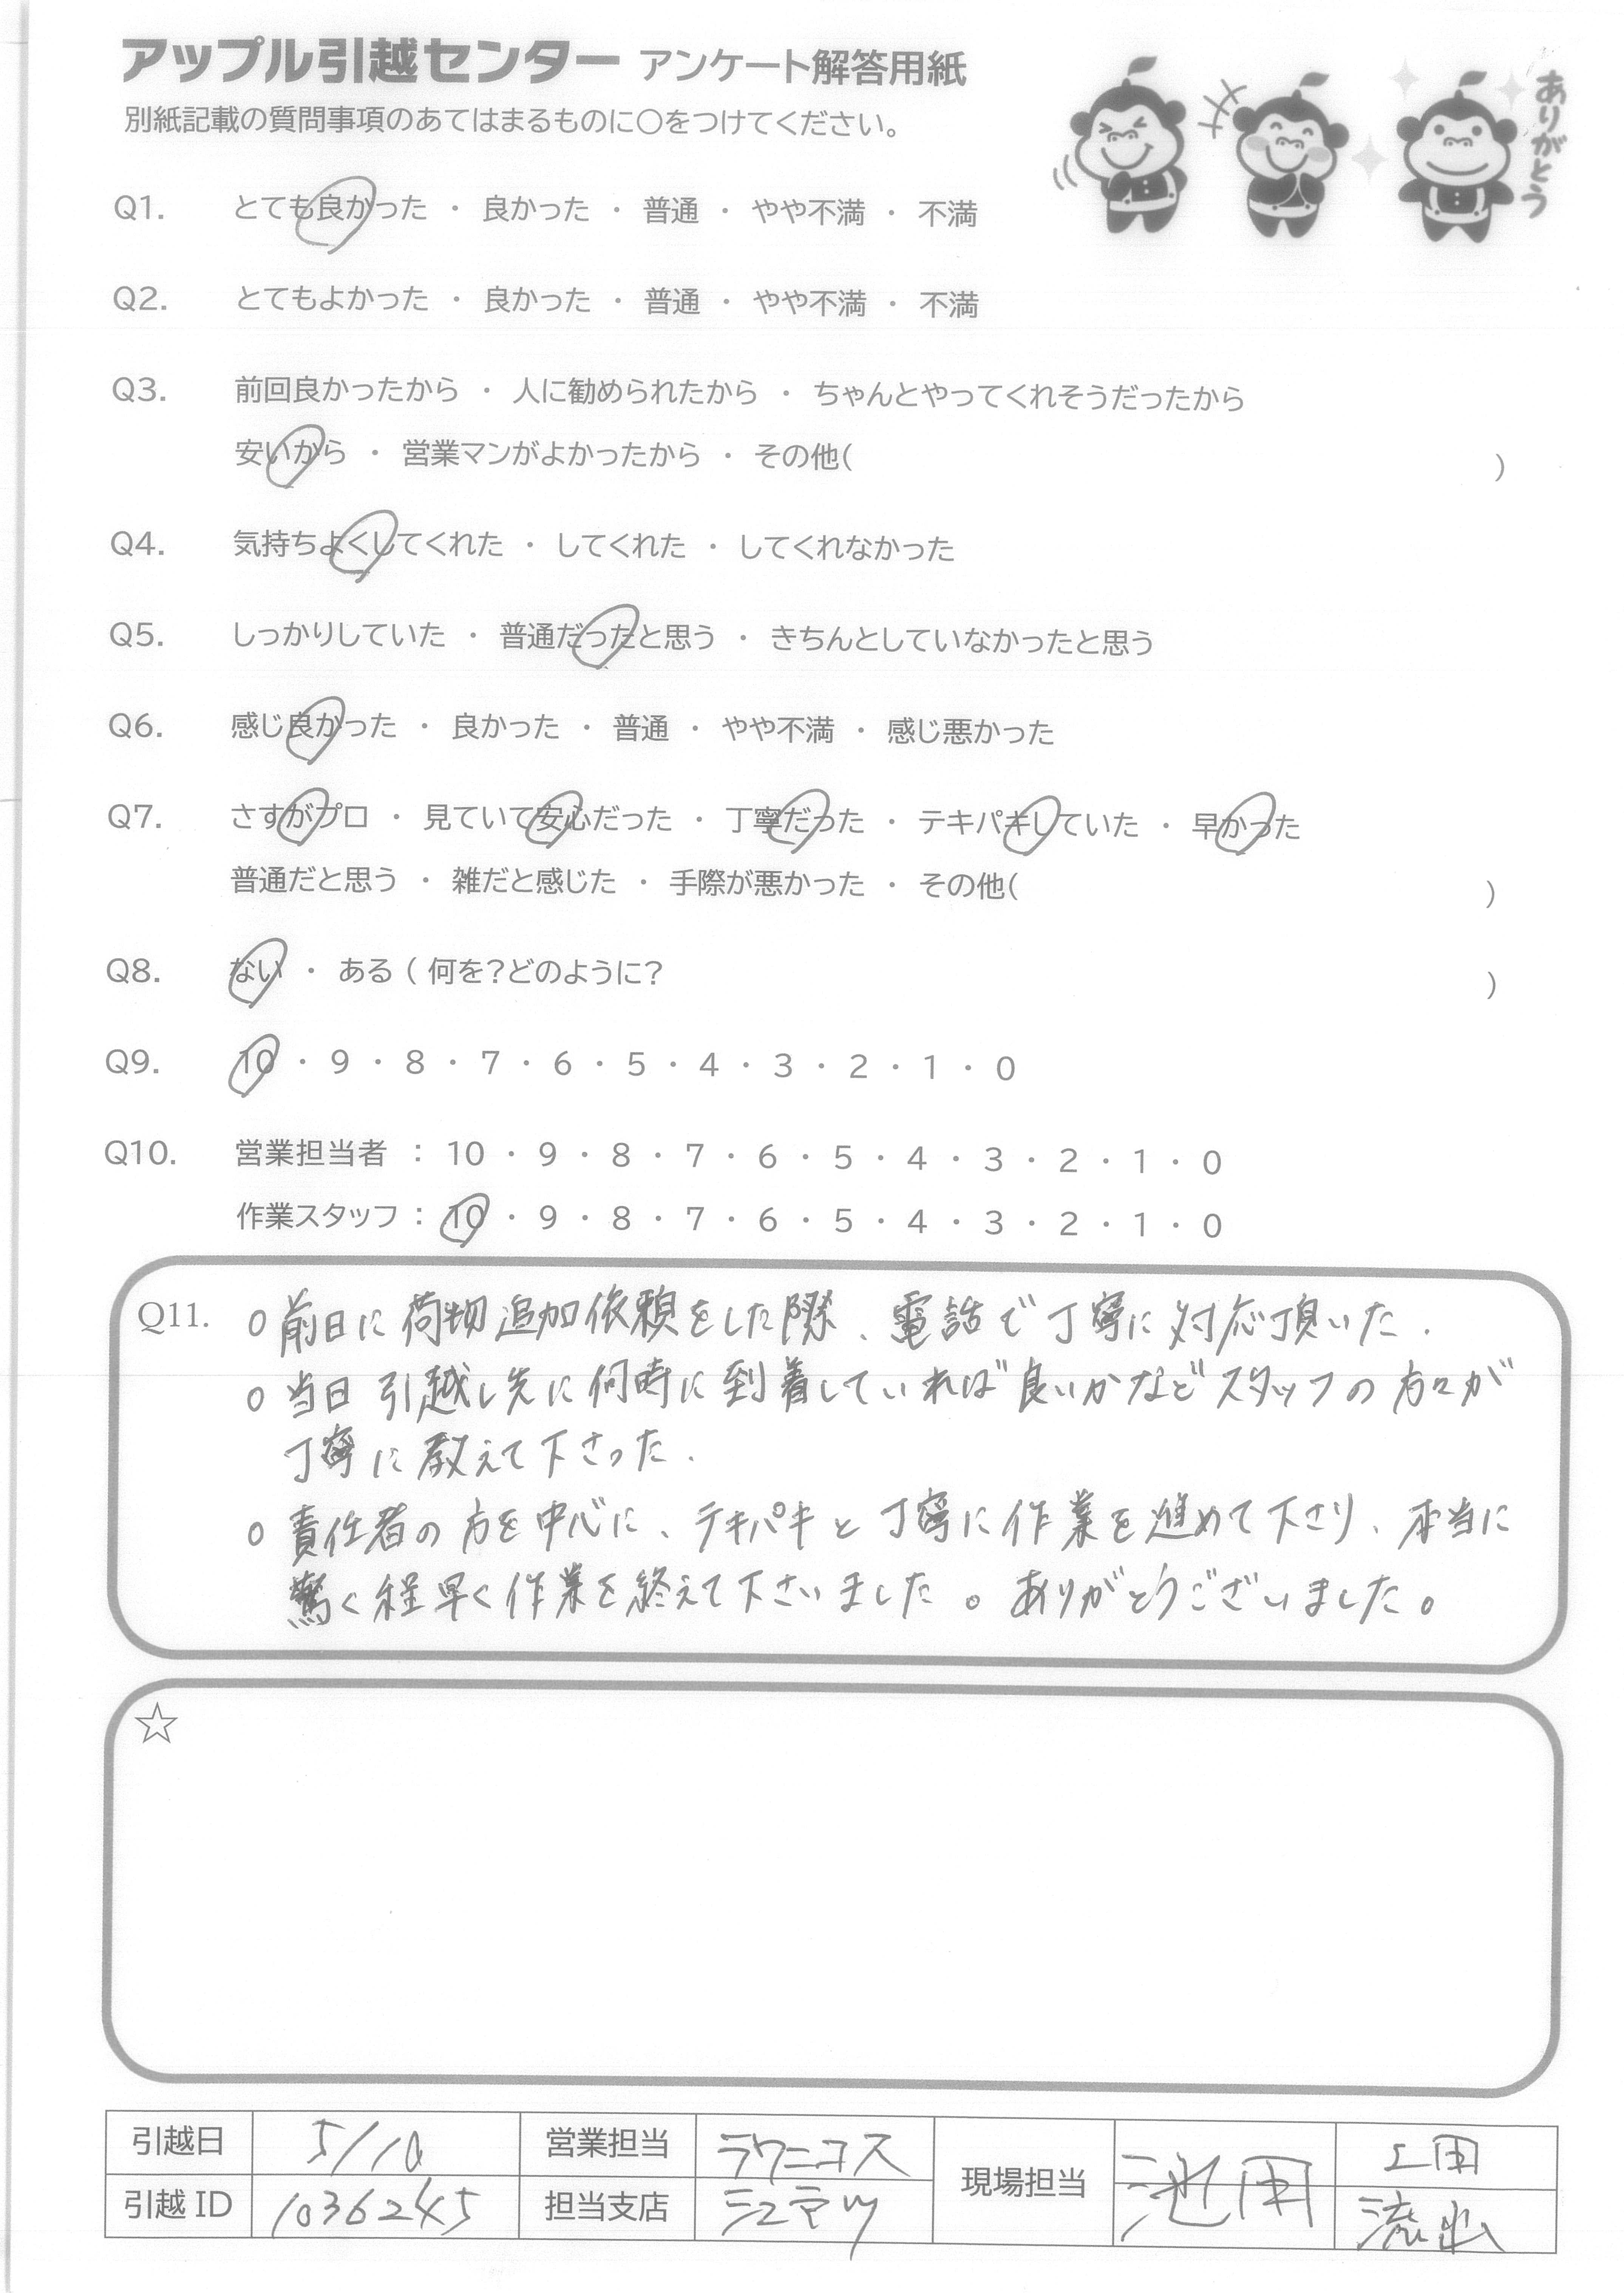 アップル引越センター アンケート解答用紙
別紙記載の質問事項のあてはまるものに○をつけてください。
ありがとう
Q1. とても良かった ・ 良かった ・ 普通 ・ やや不満 ・ 不満
Q2. とてもよかった ・ 良かった ・ 普通 ・ やや不満 ・ 不満
Q3. 前回良かったから ・ 人に勧められたから ・ ちゃんとやってくれそうだったから
安いから ・ 営業マンがよかったから ・ その他( )
Q4. 気持ちよくしてくれた ・ してくれた ・ してくれなかった
Q5. しっかりしていた ・ 普通だったと思う ・ きちんとしていなかったと思う
Q6. 感じ良かった ・ 良かった ・ 普通 ・ やや不満 ・ 感じ悪かった
Q7. さすがプロ ・ 見ていて安心だった ・ 丁寧だった ・ テキパキしていた ・ 早かった
普通だと思う ・ 雑だと感じた ・ 手際が悪かった ・ その他( )
Q8. ない ・ ある ( 何を?どのように? )
Q9. 10 ・ 9 ・ 8 ・ 7 ・ 6 ・ 5 ・ 4 ・ 3 ・ 2 ・ 1 ・ 0
Q10. 営業担当者 : 10 ・ 9 ・ 8 ・ 7 ・ 6 ・ 5 ・ 4 ・ 3 ・ 2 ・ 1 ・ 0
作業スタッフ : 10 ・ 9 ・ 8 ・ 7 ・ 6 ・ 5 ・ 4 ・ 3 ・ 2 ・ 1 ・ 0
Q11. ○ 前日に荷物追加依頼をした際、電話で丁寧に対応頂いた.
○ 当日 引越し先に何時に到着していれば良いかなどスタッフの方々が
丁寧に教えて下さった.
○ 責任者の方を中心に、テキパキと丁寧に作業を進めて下さり、本当に
驚く程早く作業を終えて下さいました。ありがとうございました。
☆
引越日 5/10 営業担当 ラクニコス 現場担当 池田
引越ID 1036245 担当支店